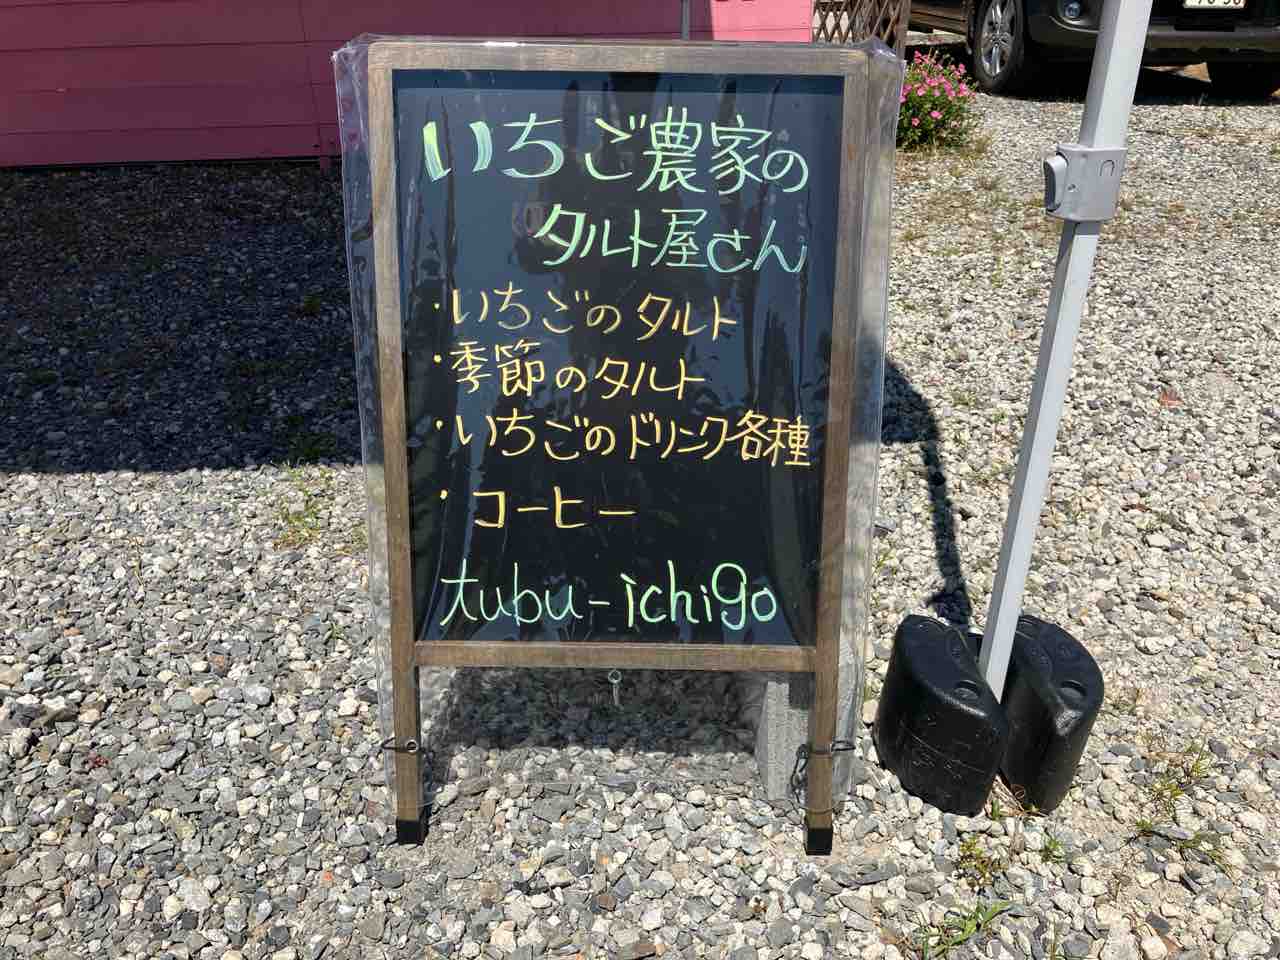 いちご農家の
タルト屋さん
・いちごのタルト
・季節のタルト
・いちごのドリンク各種
・コーヒー
tubu-ichigo